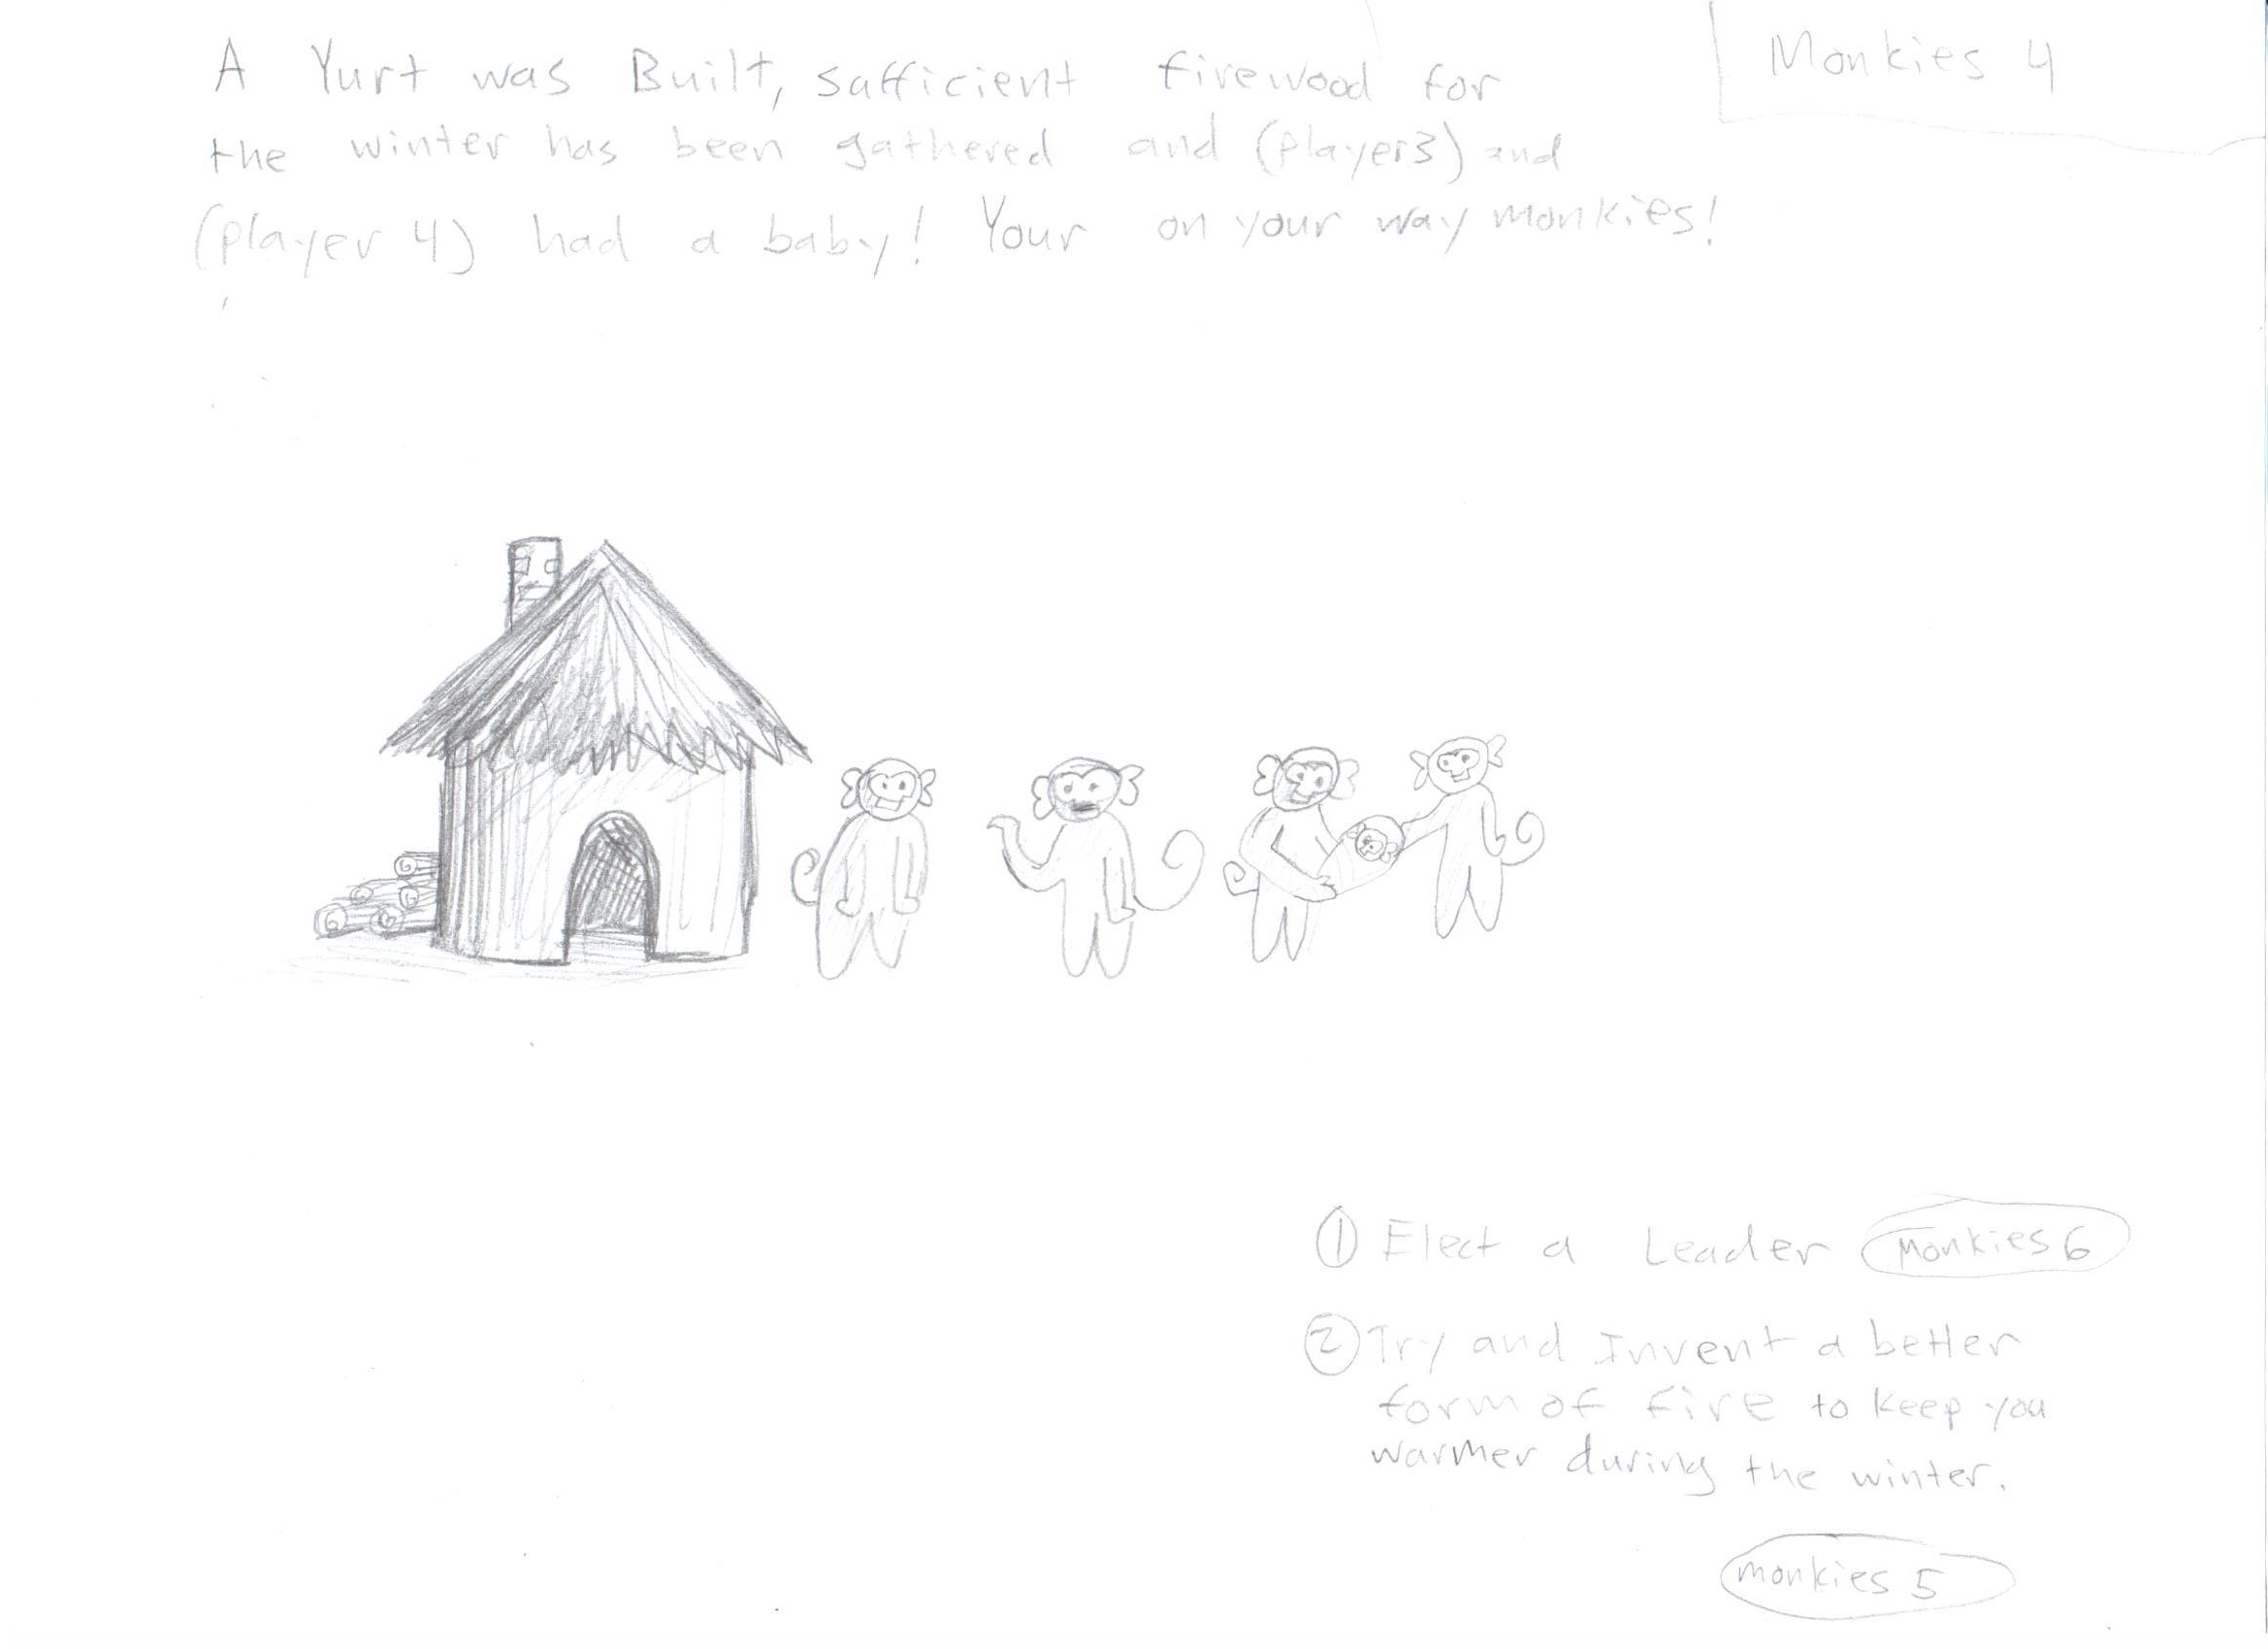 Monkies 4
A Yurt was Built, sufficient firewood for
the winter has been gathered and (player3) and
(player 4) had a baby! Your on your way monkies!
① Elect a Leader Monkies 6
② Try and Invent a better
form of fire to keep you
warmer during the winter.
monkies 5